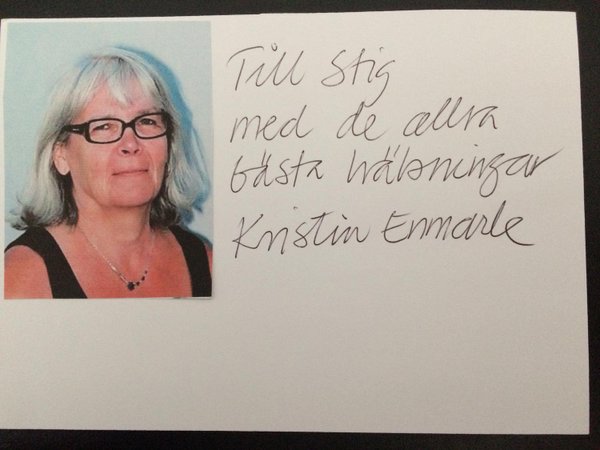 Till Stig
med de allra
bästa hälsningar
Kristin Enmark